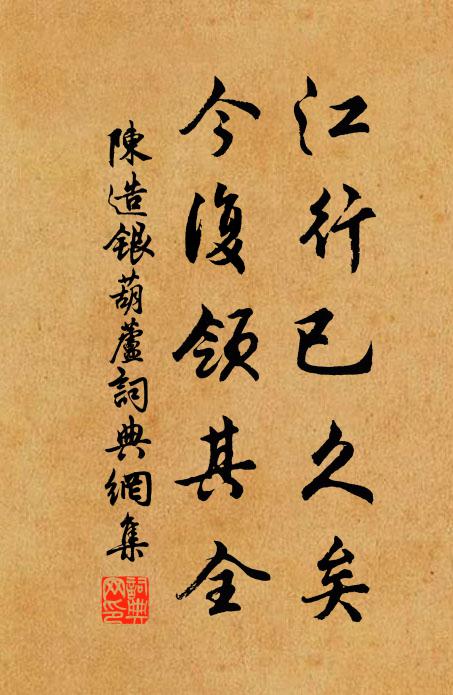 江行已久矣
今復領其全
陳造銀葫蘆詞典網集
詞典
网印